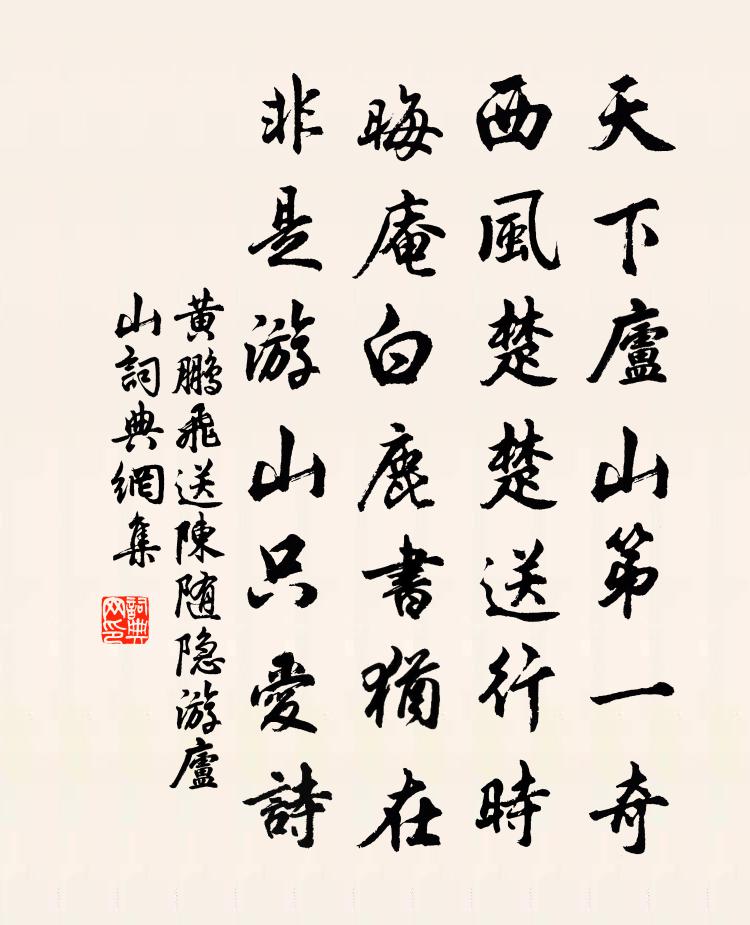 天下廬山第一奇
西風楚楚送行時
晦庵白鹿書猶在
非是游山只愛詩
黃鵬飛送陳随隐游廬
山詞典網集
詞典网印